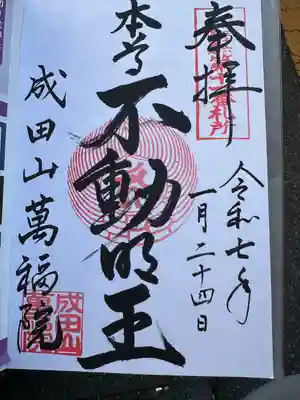 奉拝
令和七年
一月二十四日
本尊
不動明王
成田山萬福院
成田山
萬福院